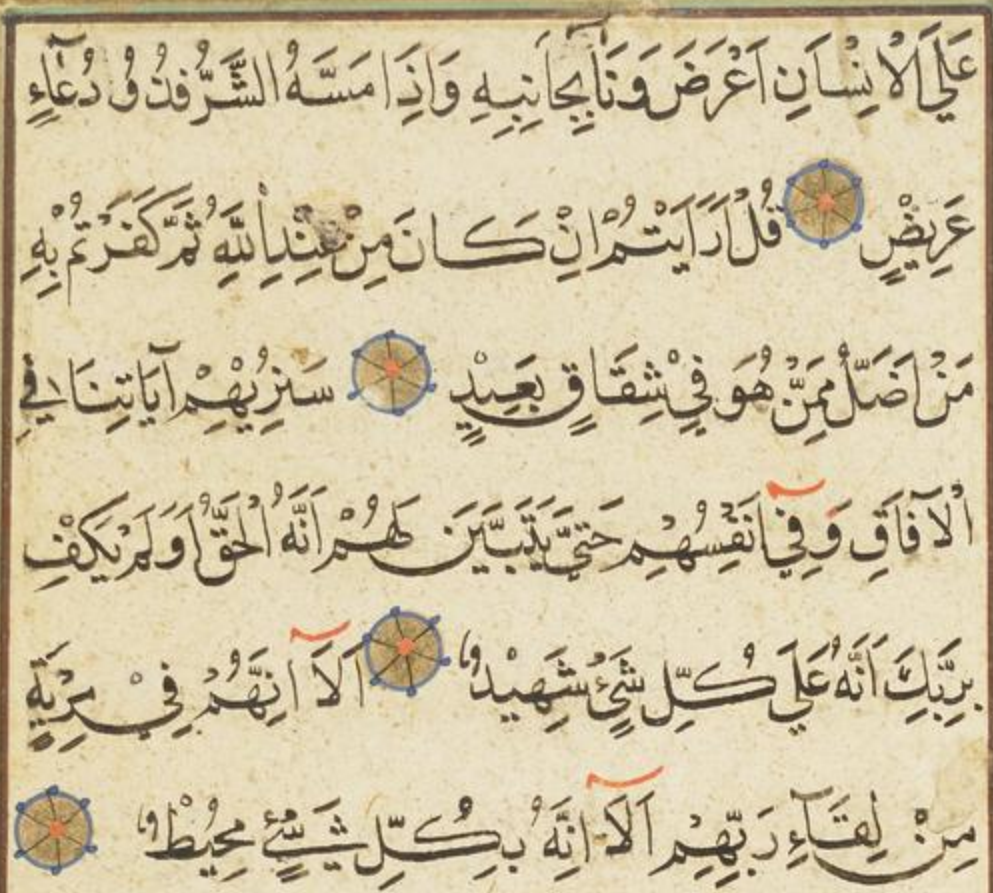 عَلَى الْاِنْسَانِ اَعْرَضَ وَنَاٰ بِجَانِبِهِ وَاِذَا مَسَّهُ الشَّرُّ فَذُو دُعَآءٍ
عَرِيْضٍ قُلْ اَرَاَيْتُمْ اِنْ كَانَ مِنْ عِنْدِ اللّٰهِ ثُمَّ كَفَرْتُمْ بِهِ
مَنْ اَضَلُّ مِمَّنْ هُوَ فِيْ شِقَاقٍ بَعِيْدٍ سَنُرِيْهِمْ آيَاتِنَا فِي
الْآفَاقِ وَفِيْ اَنْفُسِهِمْ حَتّٰى يَتَبَيَّنَ لَهُمْ اَنَّهُ الْحَقُّ اَوَلَمْ يَكْفِ
بِرَبِّكَ اَنَّهُ عَلٰى كُلِّ شَيْءٍ شَهِيْدٌ اَلَا اِنَّهُمْ فِيْ مِرْيَةٍ
مِنْ لِقَآءِ رَبِّهِمْ اَلَا اِنَّهُ بِكُلِّ شَيْءٍ مُحِيْطٌ